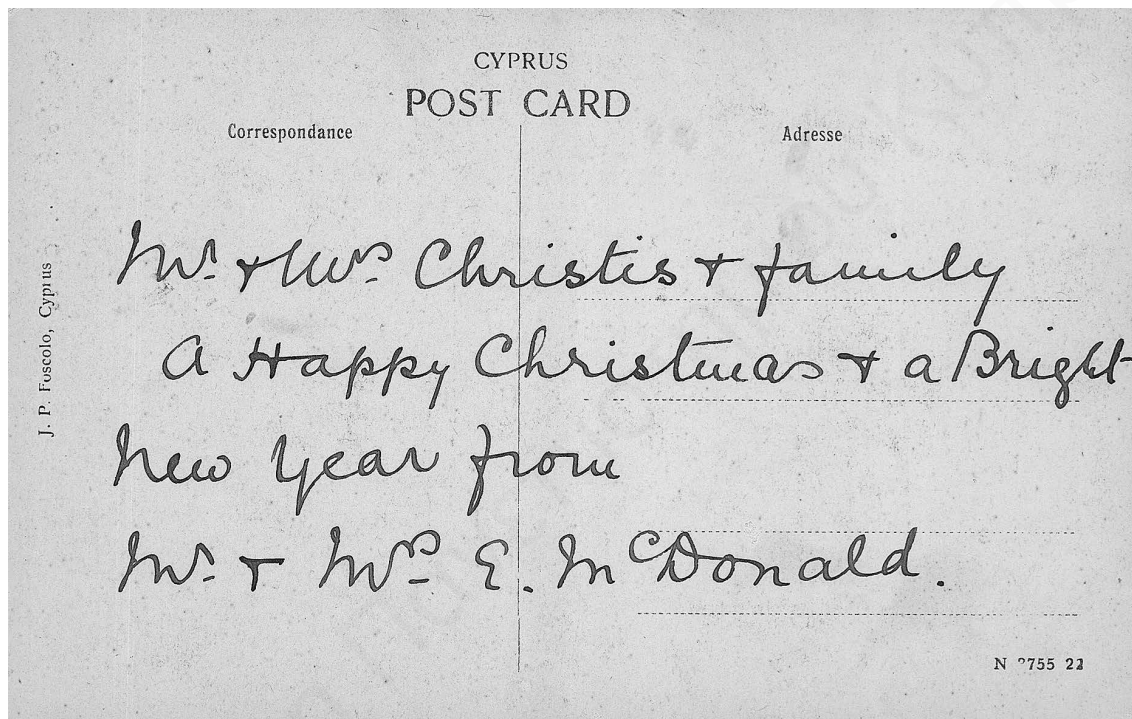 CYPRUS
POST CARD
Correspondance
Adresse
J. P. Foscolo, Cyprus
Mr. + Mrs. Christis + family
A Happy Christmas + a Bright
New Year from
Mr. + Mrs. E. McDonald.
N 2755 22